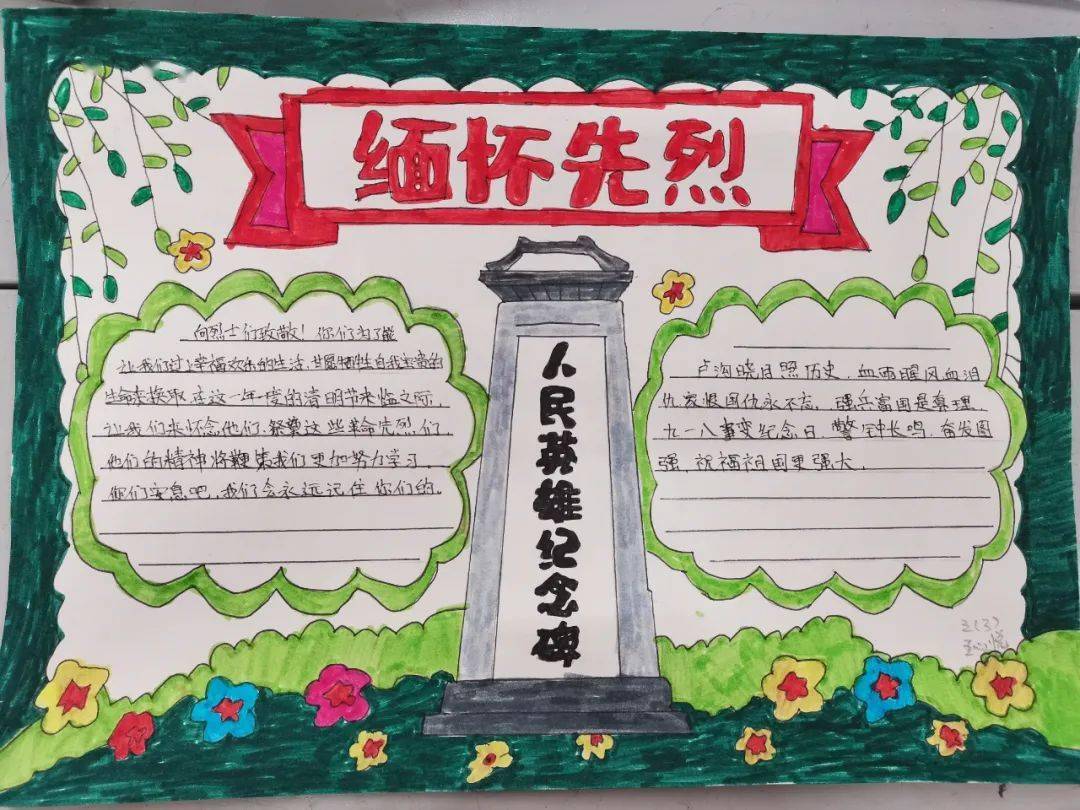 缅怀先烈
向烈士们致敬！你们为了能
让我们过上幸福欢乐的生活，甘愿牺牲自我宝贵的
生命来换取。在这一年一度的清明节来临之际，
让我们来怀念他们，祭奠这些革命先烈们，
他们的精神将鞭策我们更加努力学习。
你们安息吧，我们会永远记住你们的。
人民英雄纪念碑
卢沟晓月照历史，血雨腥风血泪
仇，家恨国仇永不忘，强兵富国是真理，
九一八事变纪念日，警钟长鸣，奋发图
强，祝福祖国更强大。
三（3）